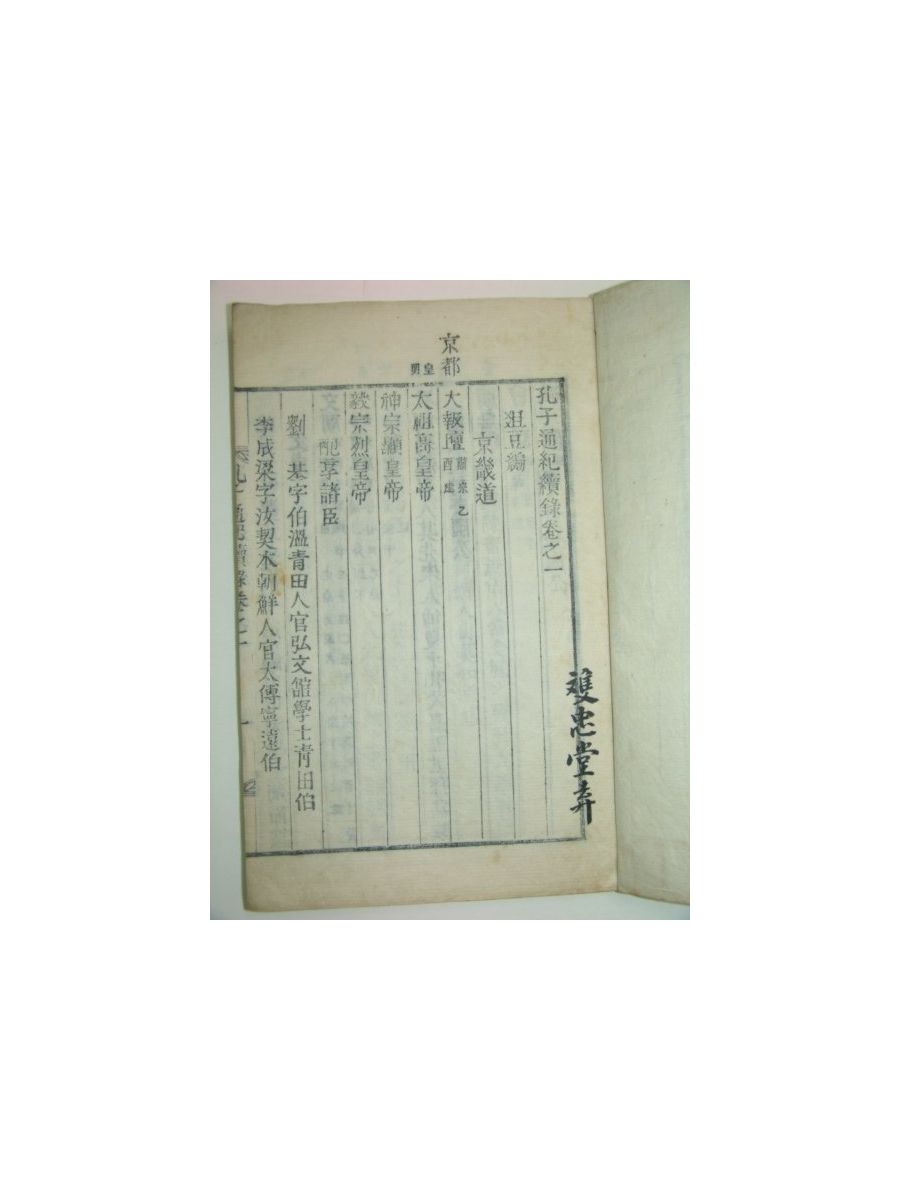 孔子通紀續錄卷之一
俎豆編
京畿道
京都
大報壇 肅宗乙酉建
皇明
太祖高皇帝
神宗顯皇帝
毅宗烈皇帝
配享諸臣
劉基字伯溫青田人官弘文館學士青田伯
李成梁字汝契本朝鮮人官太傅寧遠伯
孔子通紀續錄卷之一 一
雙忠堂弆